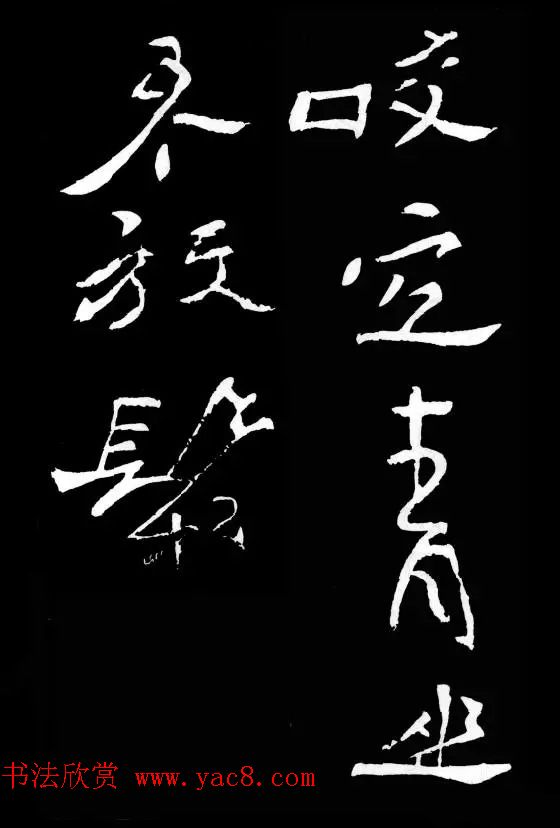 咬定青山
不放鬆
书法欣赏 www.yac8.com